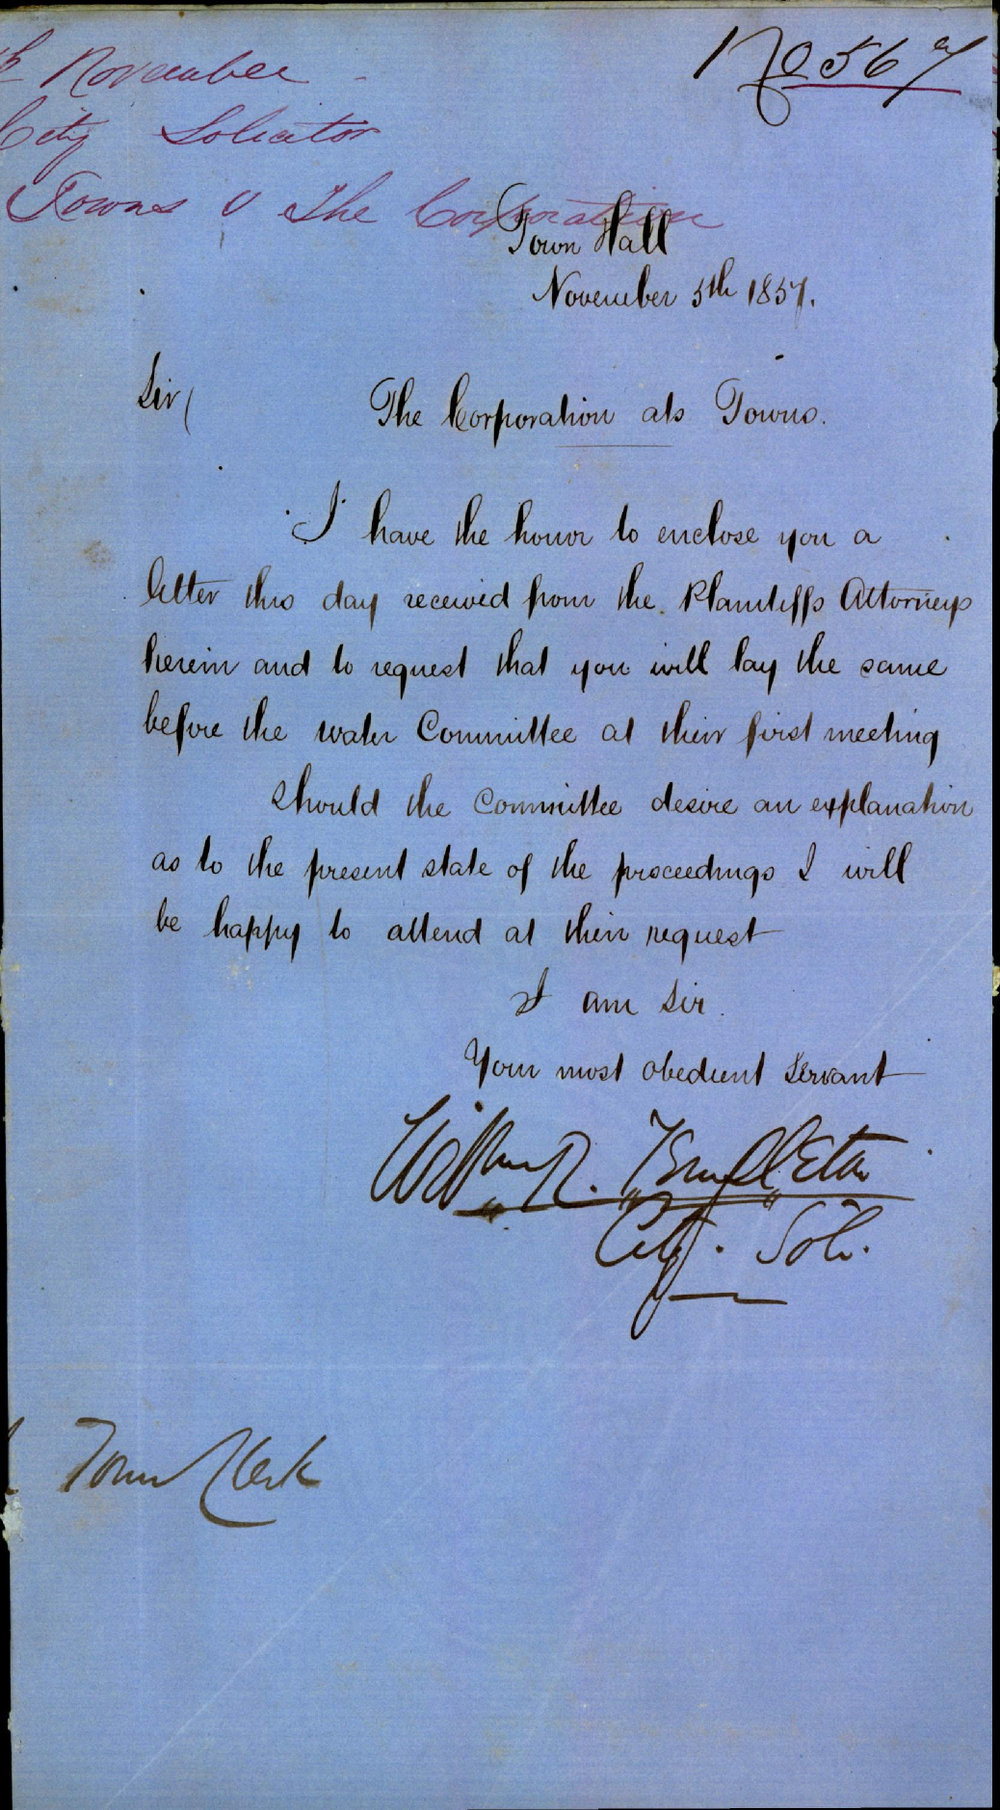 No 567
November
City Solicitor
Towns v The Corporation
Town Hall
November 5th 1857.
Sir
The Corporation ats Towns.
I have the honor to enclose you a
letter this day received from the Plaintiffs Attorneys
herein and to request that you will lay the same
before the water Committee at their first meeting
Should the Committee desire an explanation
as to the present state of the proceedings I will
be happy to attend at their request
I am Sir
Your most obedient Servant
City. Solr.
Town Clerk